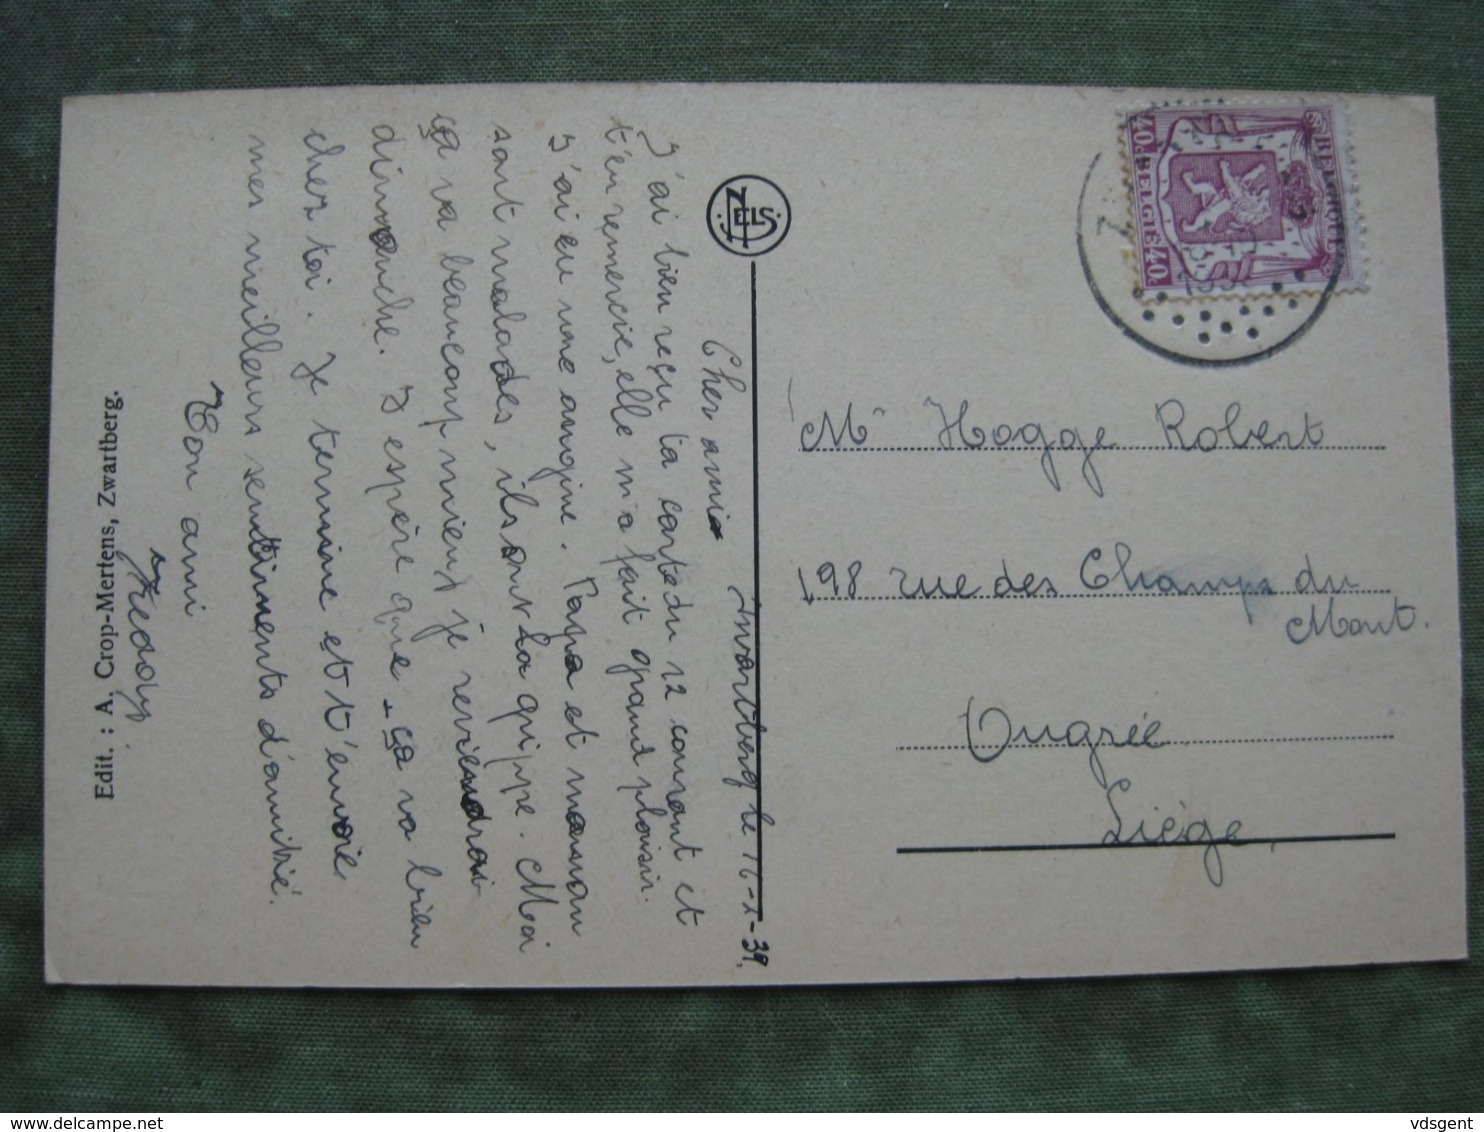 Zwartberg le 16-1-39.
Cher ami
J'ai bien reçu ta carte du 12 courant et
t'en remercie, elle m'a fait grand plaisir.
J'ai eu une angine. Papa et maman
sont malades, ils ont la grippe. Moi
ça va beaucoup mieux je reviendrai
dimanche. J'espère que ça va bien
chez toi. Je termine et t'envoie
mes meilleurs sentiments d'amitié.
Ton ami
Freddy
Edit. : A. Crop-Mertens, Zwartberg.
NELS
BELGIQUE
40c BELGIË 40c
Mr Hogge Robert
198 rue des Champs du
Mont.
Ougrée
Liège
delcampe.net
vdsgent